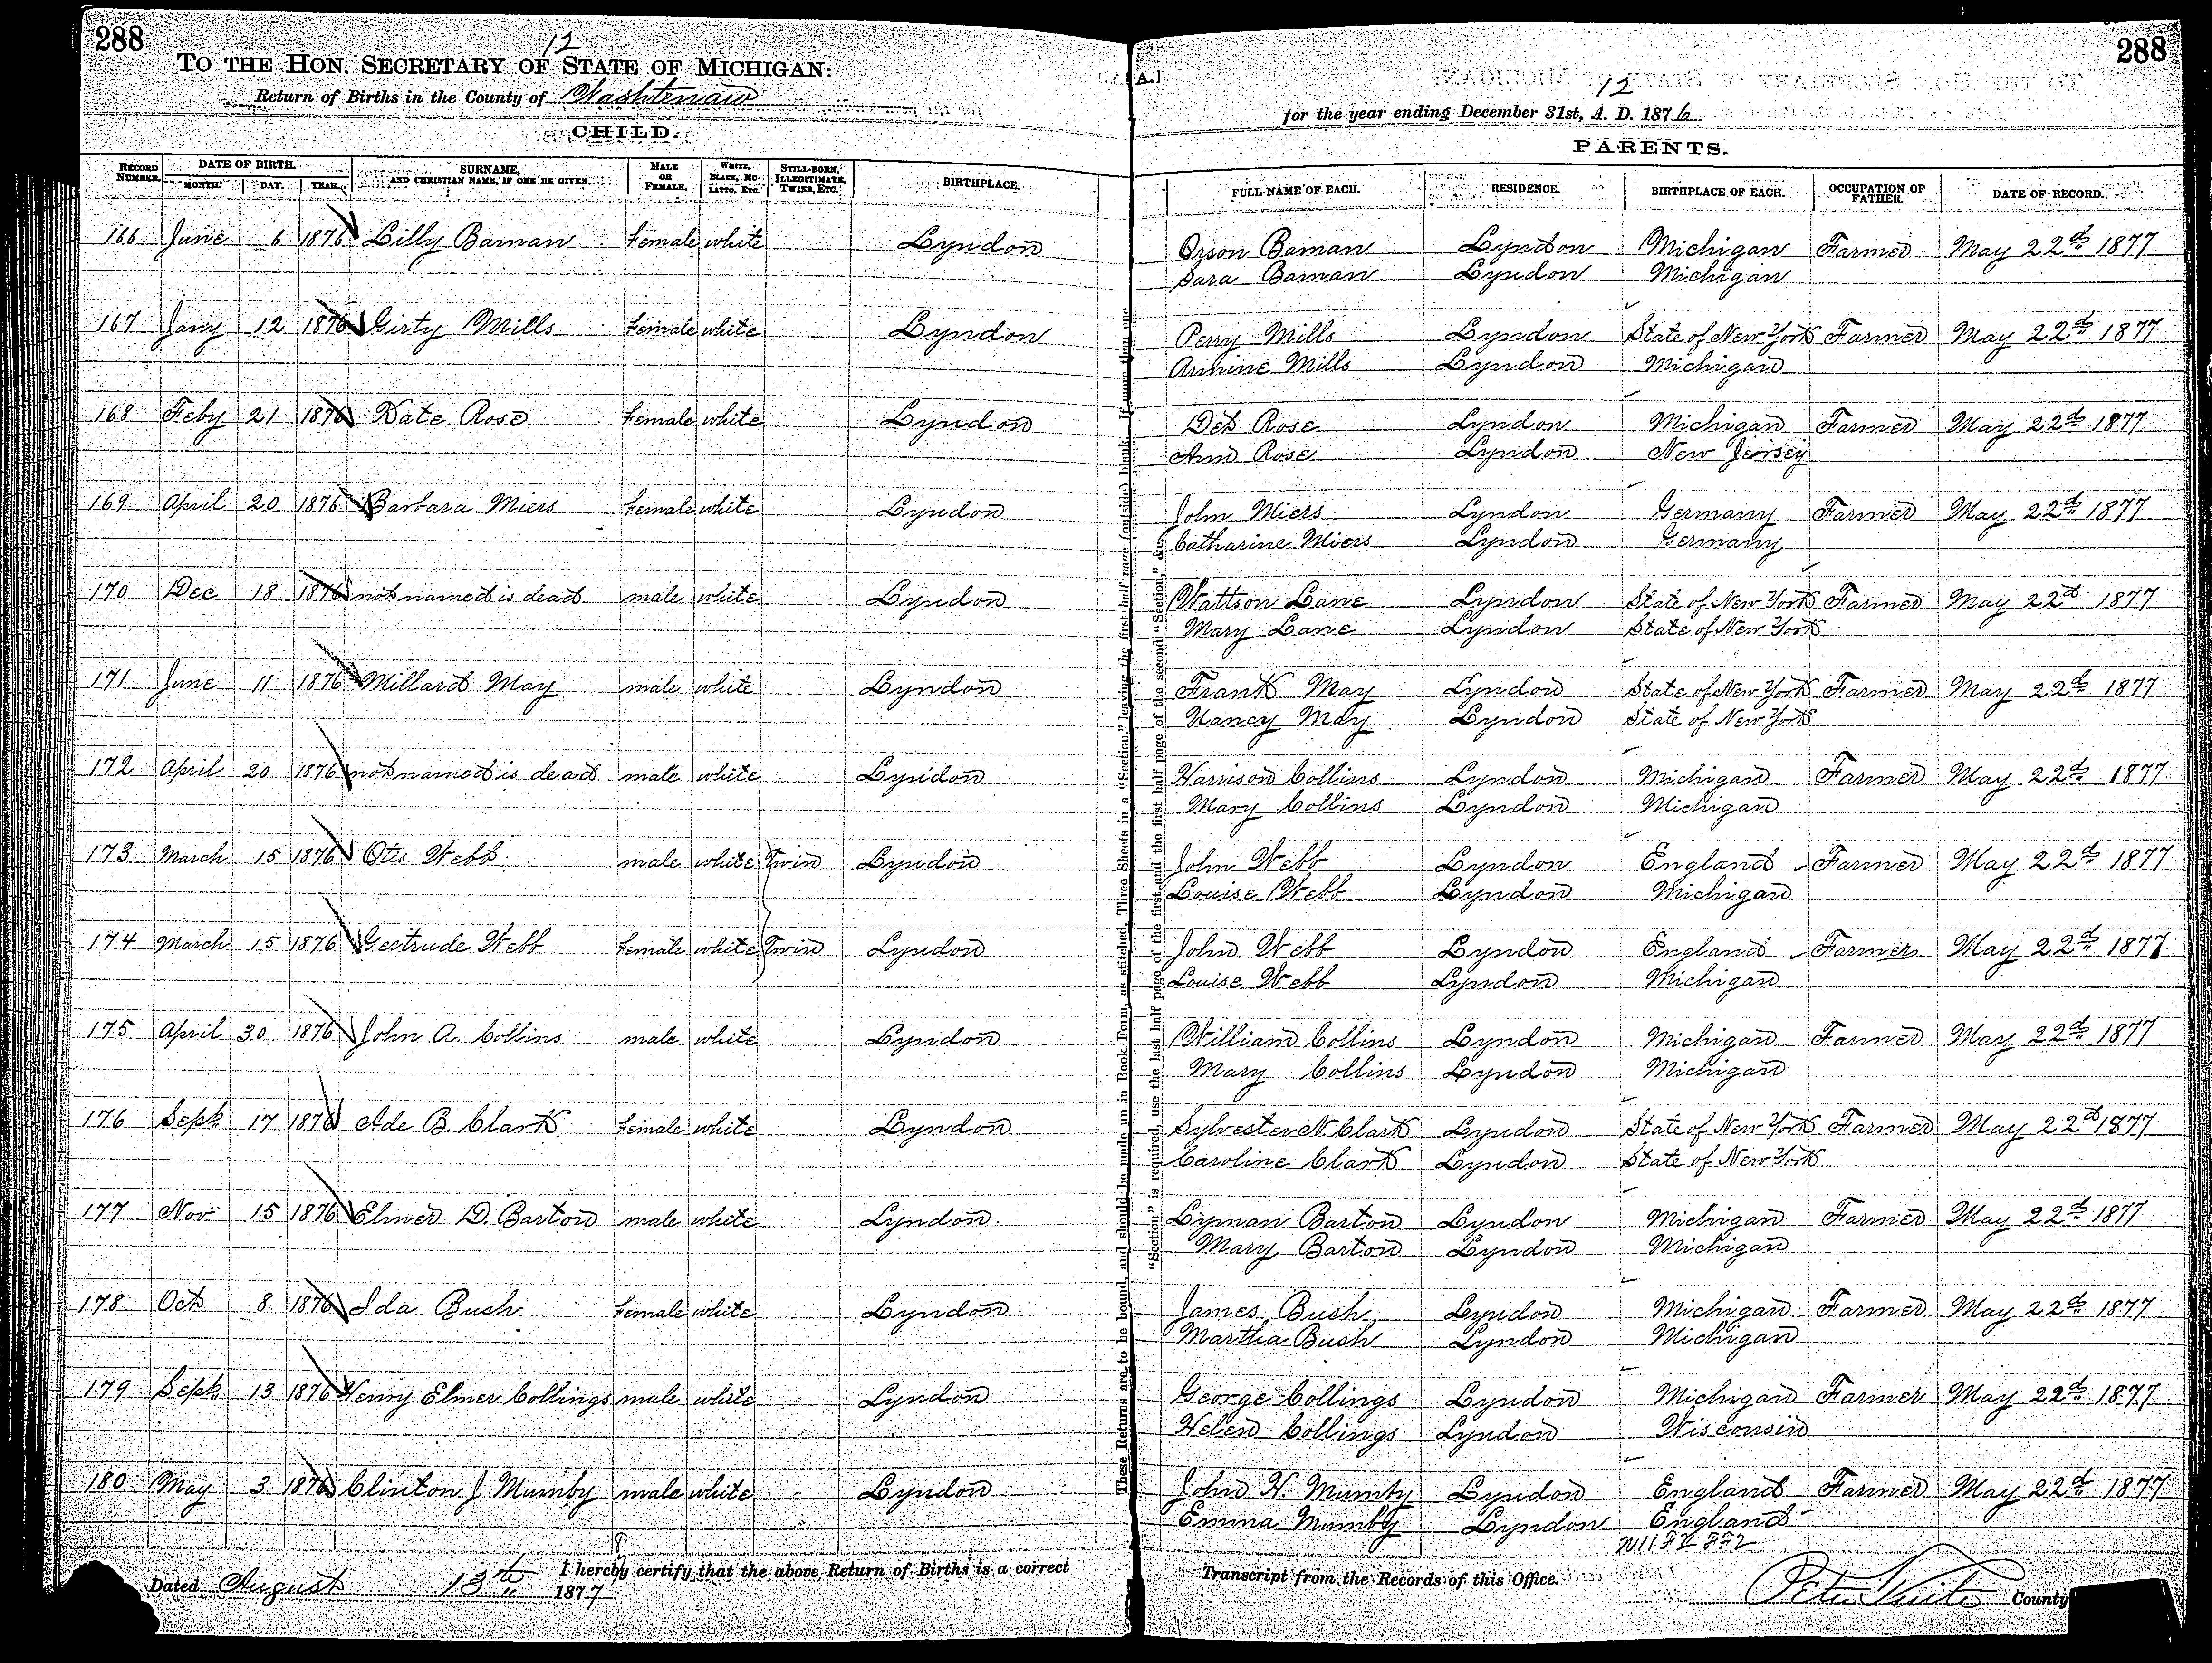 288
12
TO THE HON. SECRETARY OF STATE OF MICHIGAN:
Return of Births in the County of Washtenaw
CHILD.
RECORD NUMBER. DATE OF BIRTH. MONTH. DAY. YEAR. SURNAME, AND CHRISTIAN NAME, IF ONE BE GIVEN. MALE OR FEMALE. WHITE, BLACK, MULATTO, ETC. STILL-BORN, ILLEGITIMATE, TWINS, ETC. BIRTHPLACE.
288
12
for the year ending December 31st, A. D. 1876.
PARENTS.
FULL NAME OF EACH. RESIDENCE. BIRTHPLACE OF EACH. OCCUPATION OF FATHER. DATE OF RECORD.
166 June 6 1876 Lilly Baman Female white Lyndon Orson Baman Lyndon Michigan Farmer May 22d 1877
Sara Baman Lyndon Michigan
167 Jany 12 1876 Girty Mills Female white Lyndon Perry Mills Lyndon State of New York Farmer May 22d 1877
Armine Mills Lyndon Michigan
168 Feby 21 1876 Kate Rose Female white Lyndon Det Rose Lyndon Michigan Farmer May 22d 1877
Ann Rose Lyndon New Jersey
169 April 20 1876 Barbara Miers Female white Lyndon John Miers Lyndon Germany Farmer May 22d 1877
Catharine Miers Lyndon Germany
170 Dec 18 1876 not named is dead male white Lyndon Wattson Lane Lyndon State of New York Farmer May 22d 1877
Mary Lane Lyndon State of New York
171 June 11 1876 Millard May male white Lyndon Frank May Lyndon State of New York Farmer May 22d 1877
Nancy May Lyndon State of New York
172 April 20 1876 not named is dead male white Lyndon Harrison Collins Lyndon Michigan Farmer May 22d 1877
Mary Collins Lyndon Michigan
173 March 15 1876 Otis Webb male white Twin Lyndon John Webb Lyndon England Farmer May 22d 1877
Louise Webb Lyndon Michigan
174 March 15 1876 Gertrude Webb Female white Twin Lyndon John Webb Lyndon England Farmer May 22d 1877
Louise Webb Lyndon Michigan
175 April 30 1876 John A. Collins male white Lyndon William Collins Lyndon Michigan Farmer May 22d 1877
Mary Collins Lyndon Michigan
176 Sept 17 1876 Ade B. Clark Female white Lyndon Sylvester N. Clark Lyndon State of New York Farmer May 22d 1877
Caroline Clark Lyndon State of New York
177 Nov 15 1876 Elmer D. Barton male white Lyndon Lyman Barton Lyndon Michigan Farmer May 22d 1877
Mary Barton Lyndon Michigan
178 Oct 8 1876 Ida Bush Female white Lyndon James Bush Lyndon Michigan Farmer May 22d 1877
Martha Bush Lyndon Michigan
179 Sept 13 1876 Henry Elmer Collings male white Lyndon George Collings Lyndon Michigan Farmer May 22d 1877
Helen Collings Lyndon Wisconsin
180 May 3 1876 Clinton J Mumby male white Lyndon John H. Mumby Lyndon England Farmer May 22d 1877
Emma Mumby Lyndon England
I hereby certify that the above Return of Births is a correct
Transcript from the Records of this Office.
Dated August 13th 1877
County
These Returns are to be bound, and should be made up in Book Form, as stitched, Three Sheets in a "Section," leaving the first half page (outside) blank.
"Section" is required, use the last half page of the first and the first half page of the second "Section,"